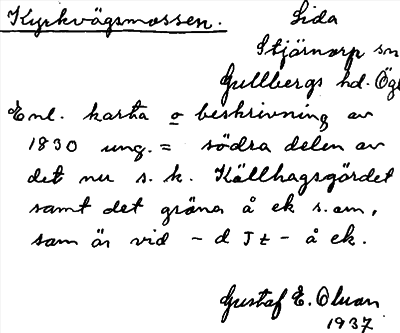 Kyrkvägsmossen. Lida
Stjärnorp sn
Gullbergs hd. Ögl
Enl. karta o beskrivning av
1830 ung. = södra delen av
det nu s.k. Källhagsgärdet
samt det gräns å ek s.om,
som är vid - d Jt - å ek.
Gustaf E. Olsson
1937.